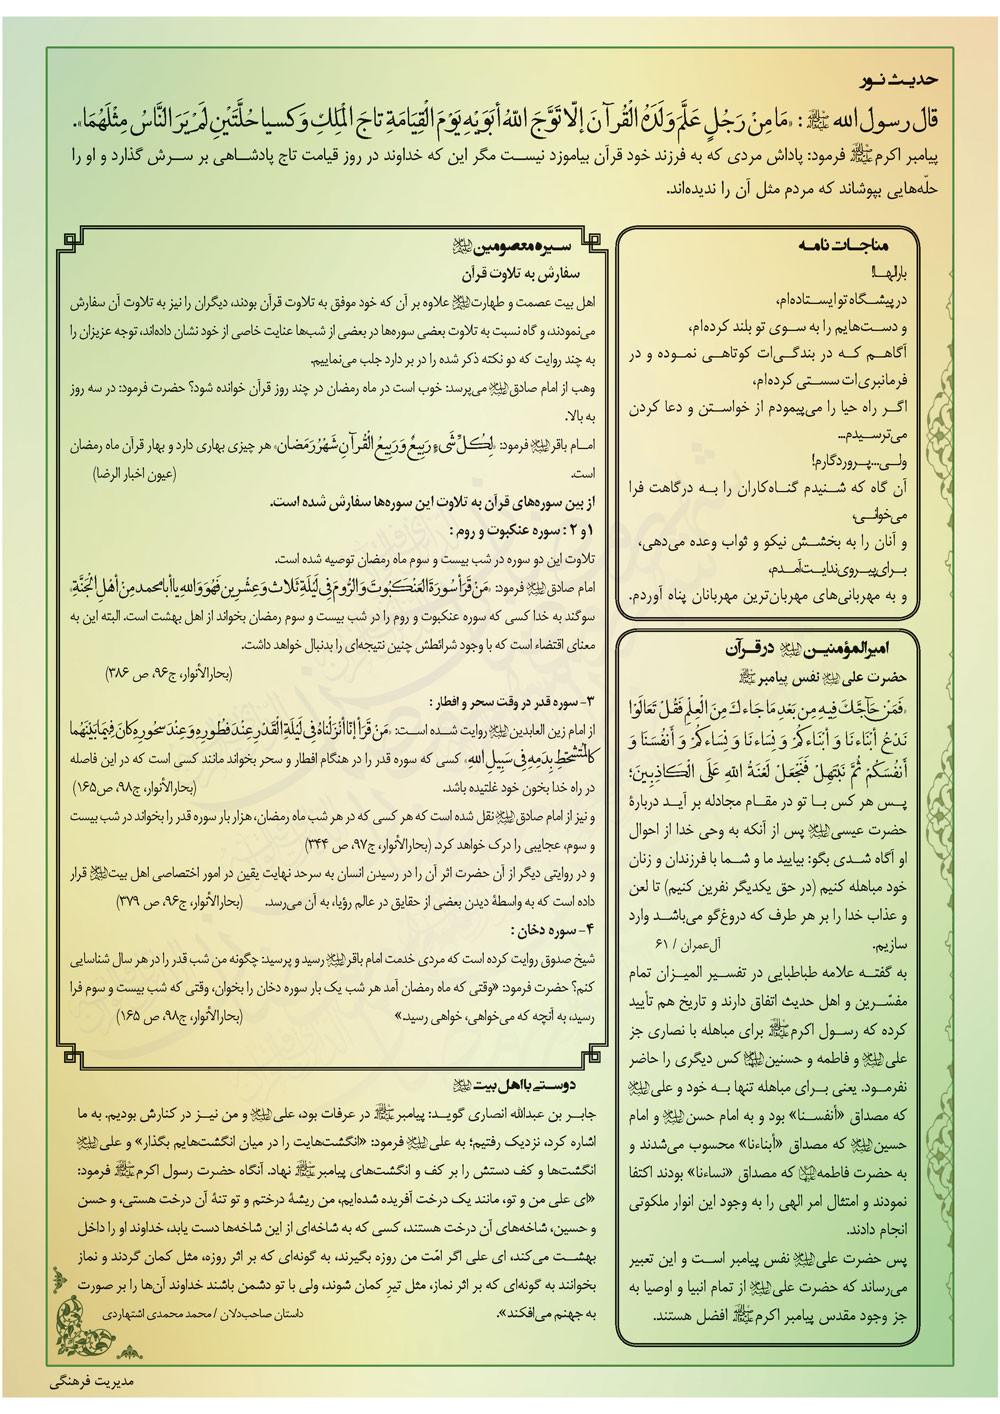 حدیث نور
قال رسول الله ﷺ: «مَا مِنْ رَجُلٍ عَلَّمَ وَلَدَهُ الْقُرآنَ إلّا تَوَّجَ اللهُ أبَوَیْهِ یَوْمَ الْقِیَامَةِ تاجَ الْمَلِكِ وَ كسیا حُلَّتَیْنِ لَمْ یَرَ النَّاسُ مِثْلَهُمَا».
پیامبر اکرمﷺ فرمود: پاداش مردی که به فرزند خود قرآن بیاموزد نیست مگر این که خداوند در روز قیامت تاج پادشاهی بر سرش گذارد و او را
حلّه‌هایی بپوشاند که مردم مثل آن را ندیده‌اند.
مناجات نامه
بارالهـا!
در پیشگاه تو ایستاده‌ام،
و دست‌هایم را به سوی تو بلند کرده‌ام،
آگاهم که در بندگی‌ات کوتاهی نموده و در
فرمانبری‌ات سستی کرده‌ام،
اگر راه حیا را می‌پیمودم از خواستن و دعا کردن
می‌ترسیدم...
ولی...پروردگارم!
آن گاه که شنیدم گناه‌کاران را به درگاهت فرا
می‌خوانی،
و آنان را به بخشش نیکو و ثواب وعده می‌دهی،
برای پیروی ندایت آمدم،
و به مهربانی‌های مهربان‌ترین مهربانان پناه آوردم.
امیرالمؤمنین در قرآن
حضرت علی نفس پیامبرﷺ
«فَمَنْ حَاجَّكَ فِیهِ مِن بَعدِ مَا جَاءَكَ مِنَ الْعِلمِ فَقُلْ تَعَالَوا
نَدْعُ أبْنَاءَنَا وَ أبْنَاءَكُمْ وَ نِسَاءَنَا وَ نِسَاءَكُمْ وَ أنْفُسَنَا وَ
أنْفُسَكُمْ ثُمَّ نَبْتَهِلْ فَنَجْعَلْ لَعْنَةُ اللهِ عَلَی الْكَاذِبِینَ؛
پس هر کس با تو در مقام مجادله بر آید دربارهٔ
حضرت عیسی پس از آنکه به وحی خدا از احوال
او آگاه شدی بگو: بیایید ما و شما با فرزندان و زنان
خود مباهله کنیم (در حق یکدیگر نفرین کنیم) تا لعن
و عذاب خدا را بر هر طرف که دروغ‌گو می‌باشد وارد
سازیم. آل‌عمران / ۶۱
به گفته علامه طباطبایی در تفسیر المیزان تمام
مفسّرین و اهل حدیث اتفاق دارند و تاریخ هم تأیید
کرده که رسول اکرمﷺ برای مباهله با نصاری جز
علی و فاطمه و حسنین کس دیگری را حاضر
نفرمود. یعنی برای مباهله تنها به خود و علی
که مصداق «أنفسنا» بود و به امام حسن و امام
حسین که مصداق «أبناءنا» محسوب می‌شدند و
به حضرت فاطمه که مصداق «نساءنا» بودند اکتفا
نمودند و امتثال امر الهی را به وجود این انوار ملکوتی
انجام دادند.
پس حضرت علی نفس پیامبر است و این تعبیر
می‌رساند که حضرت علی از تمام انبیا و اوصیا به
جز وجود مقدس پیامبر اکرمﷺ افضل هستند.
سیره معصومین
سفارش به تلاوت قرآن
اهل بیت عصمت و طهارت علاوه بر آن که خود موفق به تلاوت قرآن بودند، دیگران را نیز به تلاوت آن سفارش
می‌نمودند، و گاه نسبت به تلاوت بعضی سوره‌ها در بعضی از شب‌ها عنایت خاصی از خود نشان داده‌اند، توجه عزیزان را
به چند روایت که دو نکته ذکر شده را در بر دارد جلب می‌نماییم.
وهب از امام صادق می‌پرسد: خوب است در ماه رمضان در چند روز قرآن خوانده شود؟ حضرت فرمود: در سه روز
به بالا.
امام باقر فرمود: «لِكُلِّ شَیءٍ رَبِیعٌ وَ رَبِیعُ الْقُرآنِ شَهْرُ رَمَضان» هر چیزی بهاری دارد و بهار قرآن ماه رمضان
است. (عیون اخبار الرضا)
از بین سوره‌های قرآن به تلاوت این سوره‌ها سفارش شده است.
۱و ۲ : سوره عنکبوت و روم :
تلاوت این دو سوره در شب بیست و سوم ماه رمضان توصیه شده است.
امام صادق فرمود: «مَنْ قَرَأ سُورَةَ العَنْكَبُوتَ وَ الرُّومَ فِی لَیْلَةِ ثَلاثٍ وَ عِشْرِین فَهُوَ وَ اللهِ یا أبا محمد مِنْ أهْلِ الجَنَّةِ»
سوگند به خدا کسی که سوره عنکبوت و روم را در شب بیست و سوم رمضان بخواند از اهل بهشت است. البته این به
معنای اقتضاء است که با وجود شرائطش چنین نتیجه‌ای را بدنبال خواهد داشت.
(بحارالأنوار، ج۹۶، ص ۳۸۶)
۳- سوره قدر در وقت سحر و افطار :
از امام زین العابدین روایت شده است: «مَنْ قَرَأ إنّا أنْزَلْناهُ فِی لَیْلَةِ الْقَدْرِ عِنْدَ فُطُورِهِ وَ عِنْدَ سَحُورِهِ كانَ فِیمَا بَیْنَهُما
كَالْمُتَشَحِّطِ بِدَمِهِ فِی سَبِیلِ اللهِ» کسی که سوره قدر را در هنگام افطار و سحر بخواند مانند کسی است که در این فاصله
در راه خدا بخون خود غلتیده باشد. (بحارالأنوار، ج۹۸، ص۱۶۵)
و نیز از امام صادق نقل شده است که هر کسی که در هر شب ماه رمضان، هزار بار سوره قدر را بخواند در شب بیست
و سوم، عجایبی را درک خواهد کرد. (بحارالأنوار، ج۹۷، ص ۳۴۴)
و در روایتی دیگر از آن حضرت اثر آن را در رسیدن انسان به سرحد نهایت یقین در امور اختصاصی اهل بیت قرار
داده است که به واسطهٔ دیدن بعضی از حقایق در عالم رؤیا، به آن می‌رسد. (بحارالأنوار، ج۹۶، ص ۳۷۹)
۴- سوره دخان :
شیخ صدوق روایت کرده است که مردی خدمت امام باقر رسید و پرسید: چگونه من شب قدر را در هر سال شناسایی
کنم؟ حضرت فرمود: «وقتی که ماه رمضان آمد هر شب یک بار سوره دخان را بخوان، وقتی که شب بیست و سوم فرا
رسید، به آنچه که می‌خواهی، خواهی رسید.» (بحارالأنوار، ج۹۸، ص ۱۶۵)
دوستی با اهل بیت
جابر بن عبدالله انصاری گوید: پیامبرﷺ در عرفات بود، علی و من نیز در کنارش بودیم. به ما
اشاره کرد، نزدیک رفتیم؛ به علی فرمود: «انگشت‌هایت را در میان انگشت‌هایم بگذار» و علی
انگشت‌ها و کف دستش را بر کف و انگشت‌های پیامبرﷺ نهاد. آنگاه حضرت رسول اکرمﷺ فرمود:
«ای علی من و تو، مانند یک درخت آفریده شده‌ایم، من ریشهٔ درختم و تو تنهٔ آن درخت هستی، و حسن
و حسین، شاخه‌های آن درخت هستند، کسی که به شاخه‌ای از این شاخه‌ها دست یابد، خداوند او را داخل
بهشت می‌کند، ای علی اگر امّت من روزه بگیرند، به گونه‌ای که بر اثر روزه، مثل کمان گردند و نماز
بخوانند به گونه‌ای که بر اثر نماز، مثل تیرِ کمان شوند، ولی با تو دشمن باشند خداوند آن‌ها را بر صورت
به جهنم می‌افکند». داستان صاحب‌دلان / محمد محمدی اشتهاردی
مدیریت فرهنگی